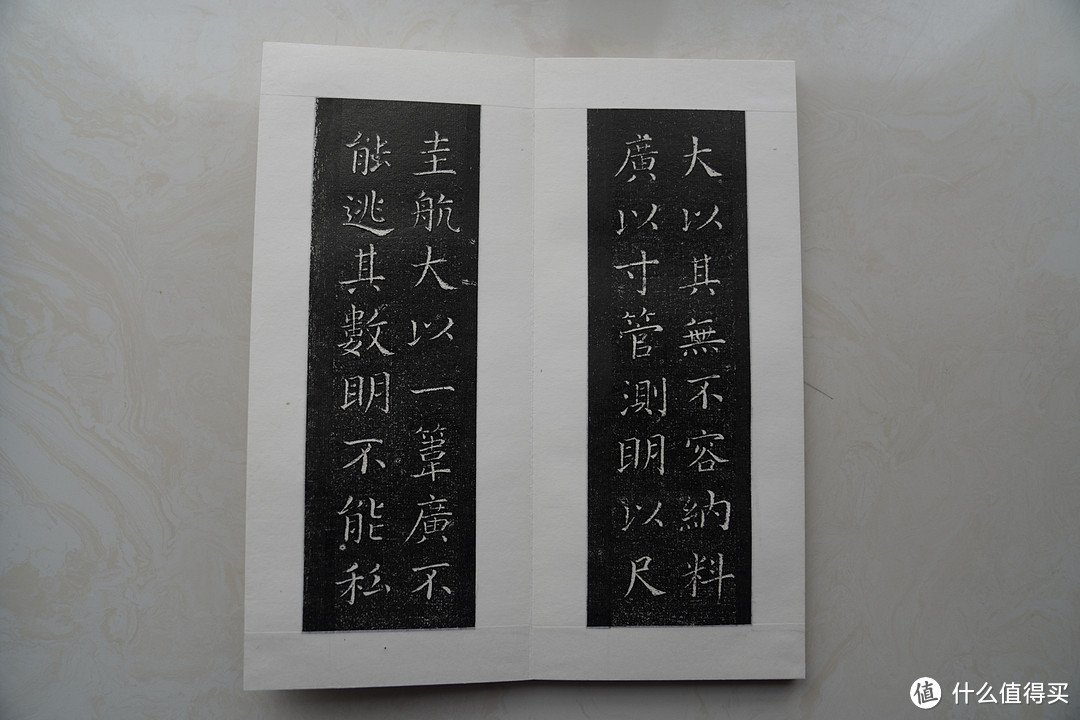 大以其無不容納料
廣以寸管測明以尺
圭航大以一葦廣不
能逃其數明不能私
值 什么值得买